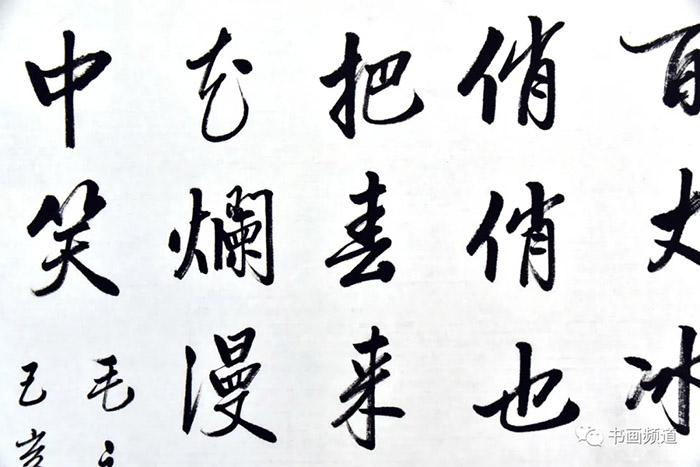 百丈冰
俏俏也
把春来
花爛漫
中笑
毛
己
书画频道